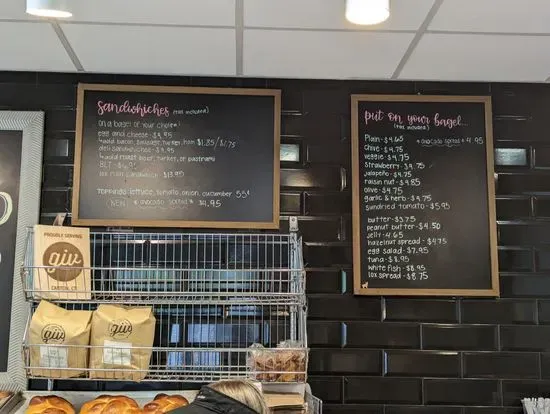 sandwhiches (tax included)
on a bagel of your choice!
egg and cheese - $4.95
add bacon, sausage, turkey, ham $1.85/$1.75
deli sandwhiches - $9.95
add roast beef, turkey, or pastrami
BLT -
lox nova sandwhich - $13.95
TOPPINGS: lettuce, tomato, onion, cucumber 55¢
avocado spread $4.95
put on your bagel...
(tax included)
Plain - $4.65
avocado spread - 4.95
chive - $4.75
veggie - $4.75
strawberry - $4.75
jalapeño - $4.75
raisin nut - $4.85
olive - $4.75
garlic & herb - $4.75
sundried tomato - $5.95
butter - $3.75
peanut butter - $4.50
jelly - 4.65
hazelnut spread - $4.75
egg salad - $7.95
tuna - $8.95
white fish - $8.95
lox spread - $8.75
PROUDLY SERVING
giv
COFFEE
giv
giv